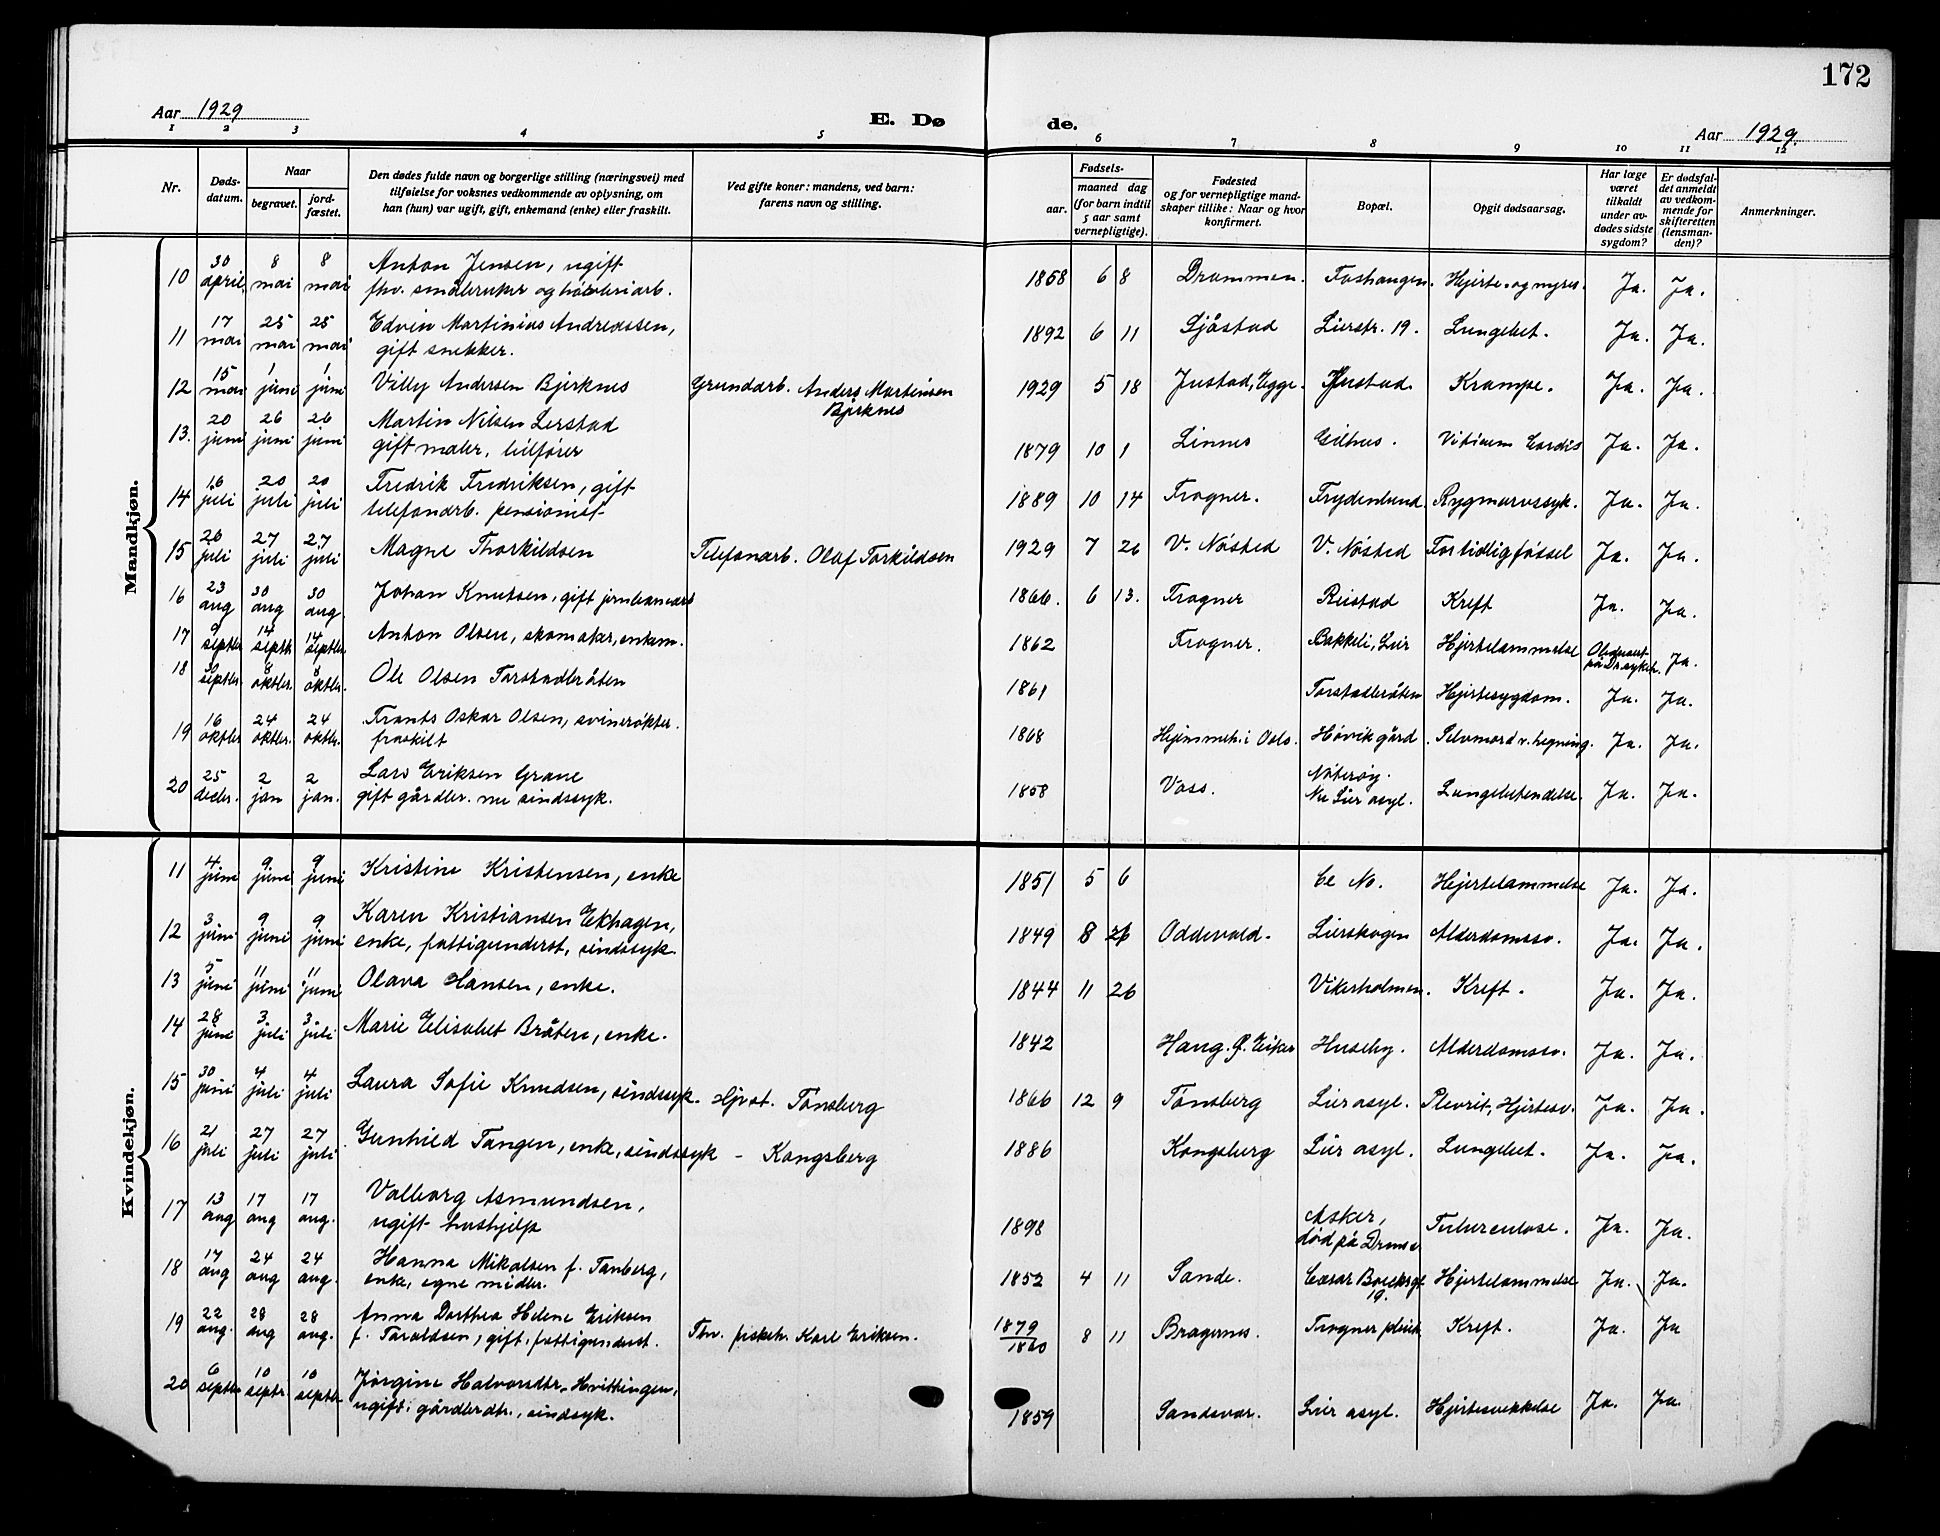 172
Aar 1929 E. Dø de. Aar 1929.
1 2 3 4 5 6 7 8 9 10 11 12
Nr. Døds-datum. Naar begravet. jord-fæstet. Den dødes fulde navn og borgerlige stilling (næringsvei) med tilføielse for voksnes vedkommende av oplysning, om han (hun) var ugift, gift, enkemand (enke) eller fraskilt. Ved gifte koner: mandens, ved barn: farens navn og stilling. Fødsels- aar. maaned dag (for barn indtil 5 aar samt vernepligtige). Fødested og for vernepligtige mand-skaper tillike: Naar og hvor konfirmert. Bopæl. Opgit dødsaarsag. Har læge været tilkaldt under av-dødes sidste sygdom? Er dødsfal-det anmeldt av vedkom-mende for skifteretten (lensman-den)? Anmerkninger.
Mandkjøn.
10 30 april 8 mai 8 mai Anton Jensen, ugift fhv. småbruker og høvleriarb. 1858 6 8 Drammen. Foshaugen. Hjerte- og nyres. Ja. Ja.
11 17 mai 25 mai 25 mai Edvin Martinius Andreassen, gift snekker. 1892 6 11 Sjåstad Lierstr. 19. Lungebet. Ja. Ja.
12 15 mai 1 juni 1 juni Villy Andersen Bjerknes Grundarb. Anders Martinsen Bjerknes 1929 5 18 Justad, Egge. Justad. Krampe. Ja. Ja.
13. 20 juni 26 juni 26 juni Martin Nilsen Lerstad gift maler, bilfører 1879 10 1 Linnes Gilhus. Vitium Cordis Ja. Ja.
14 16 juli 20 juli 20 juli Fredrik Fredriksen, gift telefonarb. pensionist 1889 10 14 Frogner. Frydenlund. Rygmarvssyk. Ja. Ja.
15 26 juli 27 juli 27 juli Magne Thorkildsen Telefonarb. Olaf Torkildsen 1929 7 26 V. Nøsted V. Nøsted For tidlig fössel Ja. Ja.
16 23 aug 30 aug 30 aug. Johan Knutsen, gift jernbanearb 1866. 6 13. Frogner Reistad Kreft Ja. Ja.
17 9 septbr 14 septb 14 septbr. Anton Olsen, skomaker, enkem. 1862 Frogner. Bakkeli, Lier Hjertelammelse Ja.
18 septbr. 8 oktbr. 8 oktbr. Ole Olsen Torstadbråten 1861 Torstadbråten Hjertesygdom. Ja. Ja.
19 16 oktbr 24 oktbr. 24 oktbr. Frants Oskar Olsen, svinerøkter. fraskilt 1868 Hjemmeh. i Oslo. Høvik gård. Selvmord v. hegning. Ja. Ja.
20 25 decbr. 2 jan 2 jan. Lars Eriksen Grane gift gårdbr. nu sindssyk. 1858 Voss. Nøterøy. Nu Lier asyl. Lungebetendelse. Ja. Ja.
Kvindekjøn.
11 4 juni 9 juni 9 juni Kristine Kristensen, enke 1851 5 6 Hjertelammelse Ja. Ja.
12 3 juni 9 juni 9 juni Karen Kristiansen Ekhagen, enke, fattigunderst, sindssyk 1849 8 26 Oddevald. Lierskogen Alderdomssv. Ja. Ja.
13 5 juni 11 juni 11 juni Olava Hansen, enke. 1844 11 26 Vikerholmen. Kreft. Ja. Ja.
14 28 juni 3 juli 3 juli Marie Elisabet Bråten, enke. 1842 Haug. Ø. Eiker Huseby. Alderdomssv. Ja. Ja.
15 30 juni 4 juli 4 juli Laura Sofie Knudsen, sindssyk. Hjvst. Tønsberg 1866 12 9 Tønsberg Lier asyl. Plevrit, Hjertesv. Ja. Ja.
16 21 juli 27 juli 27 juli Gunhild Tangen, enke, sindssyk - Kongsberg 1886 Kongsberg Lier asyl. Lungebet. Ja. Ja.
17 13 aug 17 aug 17 aug. Valborg Asmundsen, ugift hushjelp 1898 Asker, død på Drms s Tuberculose. Ja. Ja.
18 17 aug 24 aug 24 aug. Hanna Mikalsen f. Tanberg, enke, egne midler. 1852 4 11 Sande. Cæsar Boecksgt 19. Hjertelammelse Ja. Ja.
19 22 aug. 28 aug 28 aug. Anna Dorthea Helene Eriksen f. Taraldsen, gift, fattigunderst. Fhv. fiskeh. Karl Eriksen. 1879 1880 8 11 Bragernes. Frogner pleieh Kreft. Ja. Ja
20 6 septbr 10 septr. 10 septbr. Jørgine Halvorsdtr. Hvittingen, ugift, gårdbr.dtr., sindsyk. 1859 Sandsvær. Lier asyl. Hjertesvekkelse Ja. Ja.